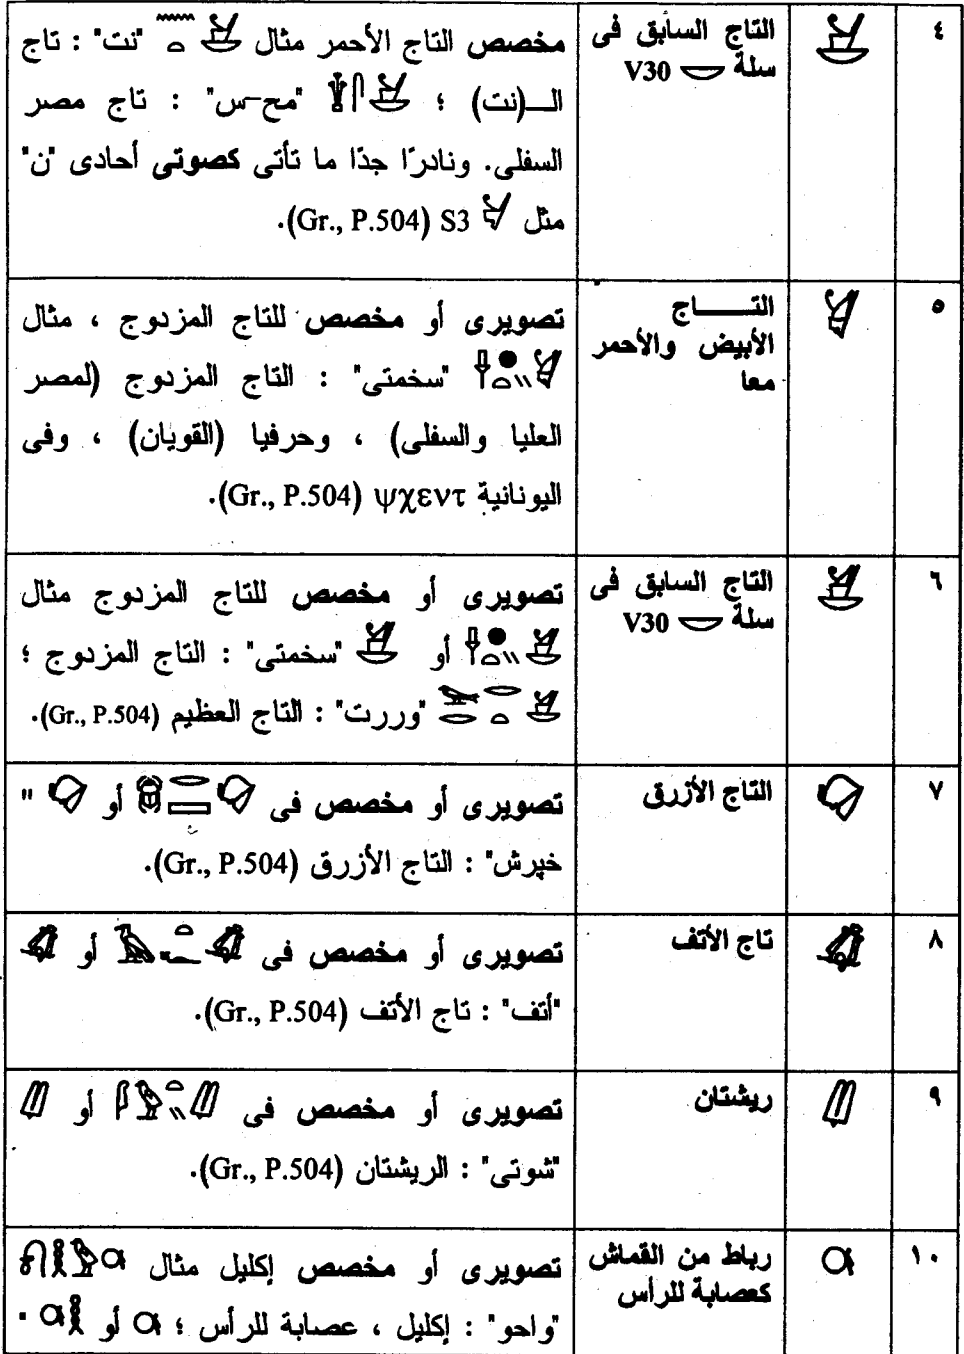 ٤
𓋕
التاج السابق فى
سلة 𓎟 V30
مخصص التاج الأحمر مثال 𓈖𓏏𓋕 "نت" : تاج
الـ(نت) ؛ 𓎔𓋴𓋕 "مح-س" : تاج مصر
السفلى. ونادرًا جدًا ما تأتى كصوتى أحادى "ن"
مثل 𓋔 S3 (Gr., P.504).
٥
𓋖
التـــاج
الأبيض والأحمر
معا
تصويرى أو مخصص للتاج المزدوج ، مثال
𓌂𓐍𓏏𓏭𓋖 "سخمتى" : التاج المزدوج (لمصر
العليا والسفلى) ، وحرفيا (القويان) ، وفى
اليونانية ψχεντ (Gr., P.504).
٦
𓋗
التاج السابق فى
سلة 𓎟 V30
تصويرى أو مخصص للتاج المزدوج مثال
𓌂𓐍𓏏𓏭𓋗 أو 𓋗 "سخمتى" : التاج المزدوج ؛
𓅨𓂋𓂋𓏏𓋗 "وررت" : التاج العظيم (Gr., P.504).
٧
𓋙
التاج الأزرق
تصويرى أو مخصص فى 𓆣𓂋𓈙𓋙 أو 𓋙 "
خپرش" : التاج الأزرق (Gr., P.504).
٨
𓋚
تاج الأتف
تصويرى أو مخصص فى 𓄿𓏏𓆑𓋚 أو 𓋚
"أتف" : تاج الأتف (Gr., P.504).
٩
𓋛
ريشتان
تصويرى أو مخصص فى 𓆄𓅱𓏏𓏭𓋛 أو 𓋛
"شوتى" : الريشتان (Gr., P.504).
١٠
𓋜
رباط من القماش
كعصابة للرأس
تصويرى أو مخصص إكليل مثال 𓍯𓎛𓅱𓋜
"واحو" : إكليل ، عصابة للرأس ؛ 𓋜 أو 𓎛𓋜 .